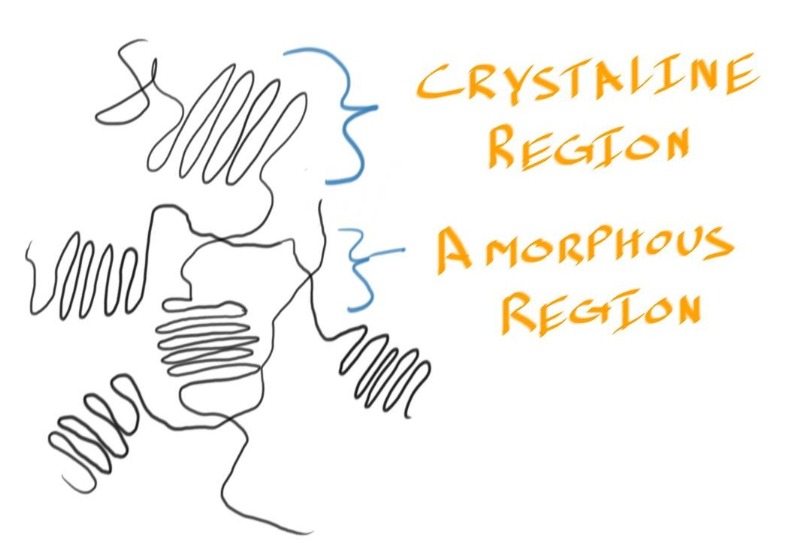 CRYSTALINE
REGION
AMORPHOUS
REGION